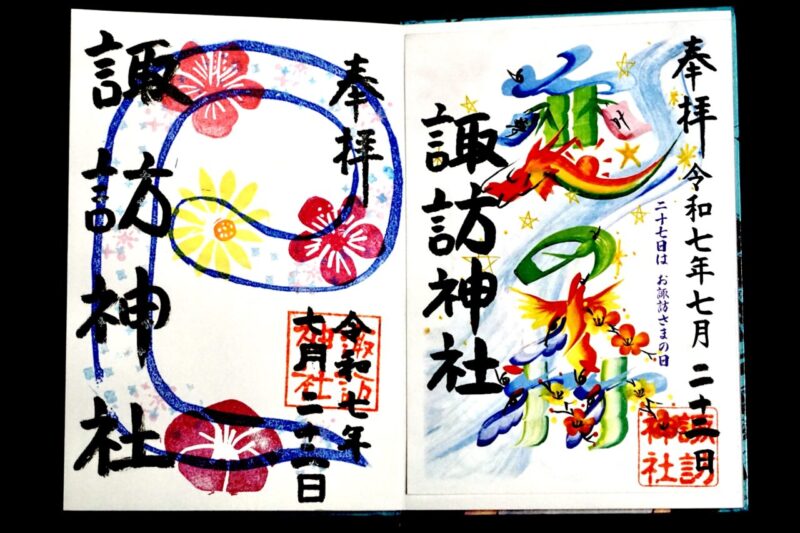 奉拝 令和七年七月二十二日
二十七日は お諏訪さまの日
叶
の
諏訪神社
諏訪神社
奉拝
令和七年
七月二十二日
諏訪神社
諏訪神社